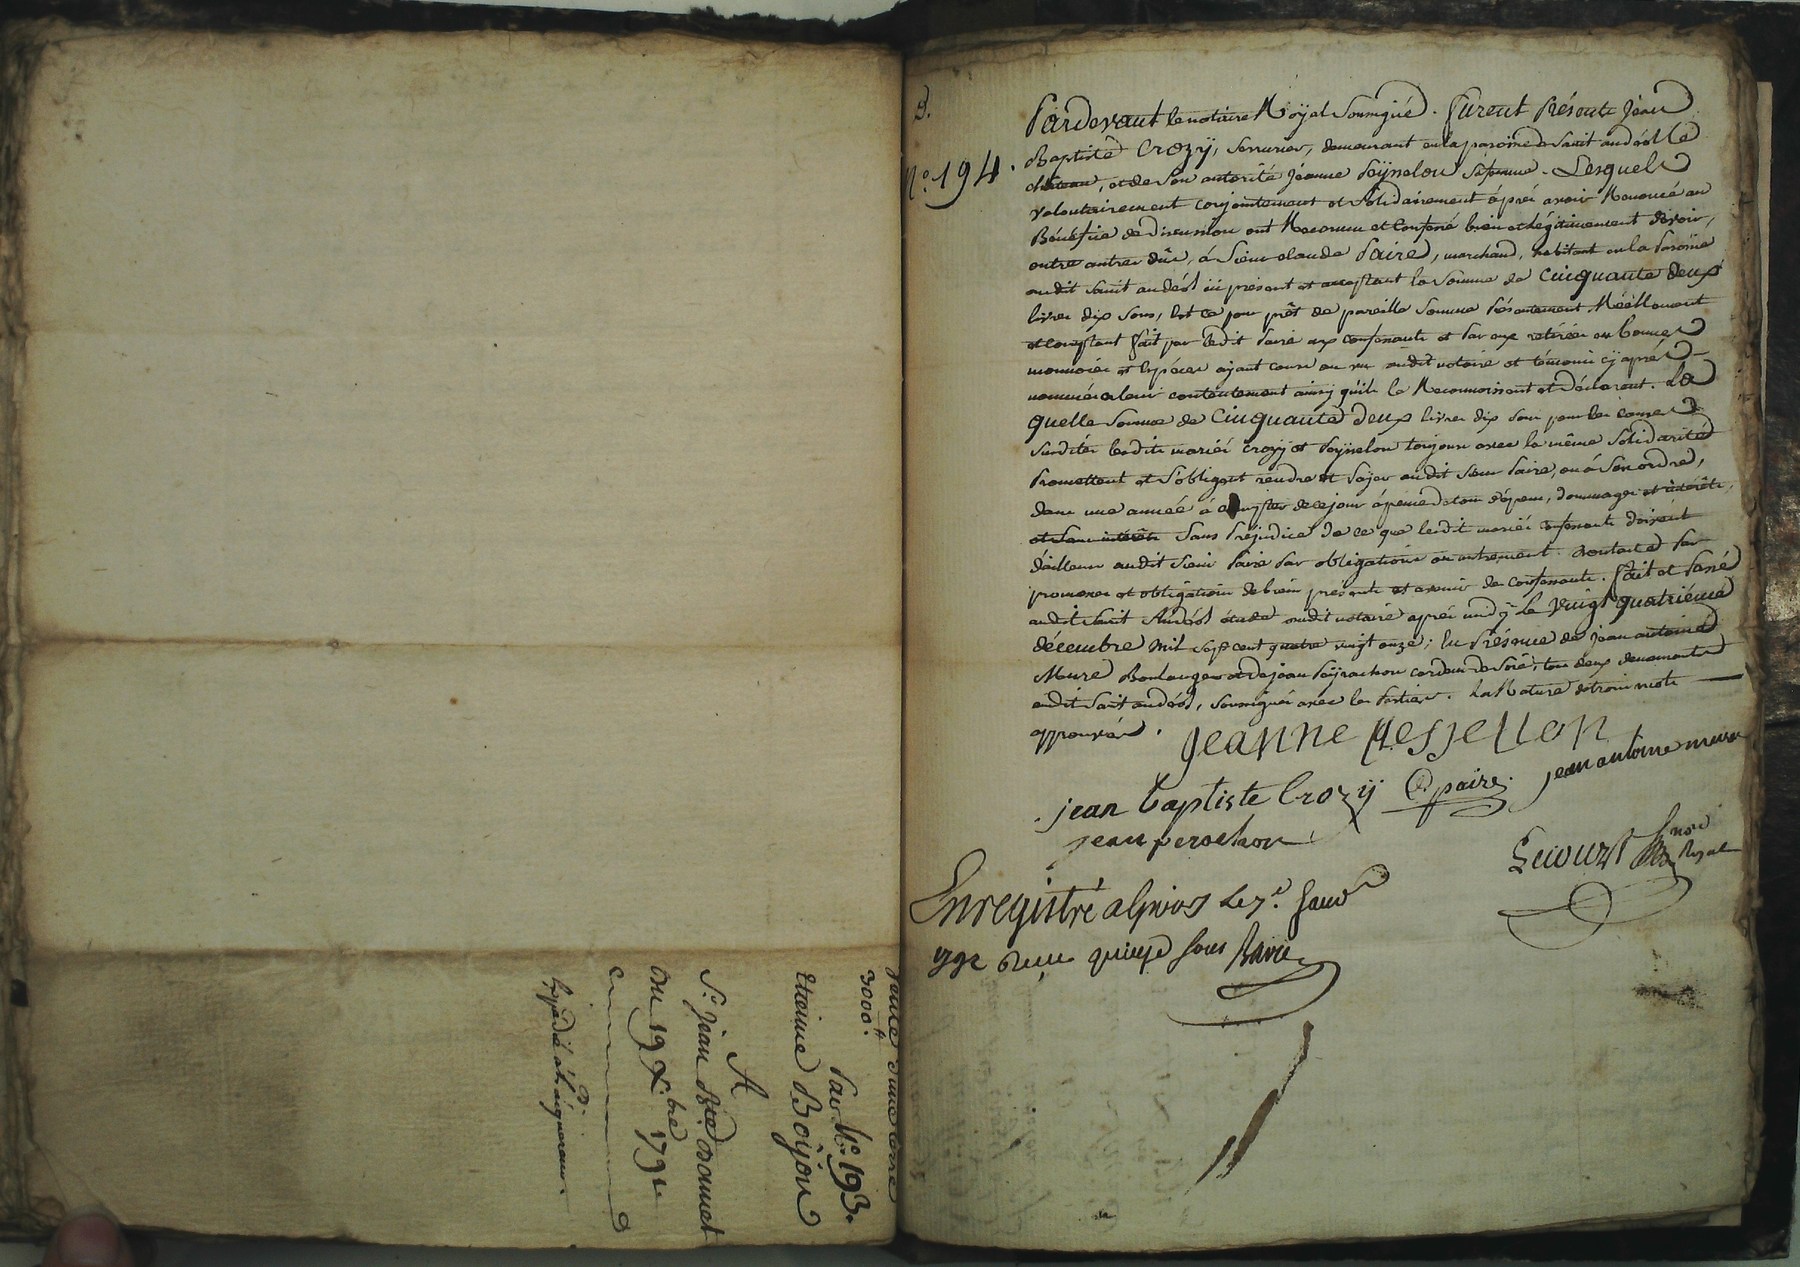 vente d'une terre
3000ᵗᵗ
Par N.º 193.
Etienne Boÿou
A
S.ʳ jean Bte. Bonnet
Du 19 X.bre 1791
Expédié à l'acquereur.
N.º 194.
Pardevant le notaire Royal Soussigné. furent Présents Jean
Baptiste Crozÿ, Serrurier, demeurant en la paroisse de Saint andéol le
château, et de Son autorité jeanne Peÿsselon Sa femme. Lesquels
volontairement conjointement et Solidairement après avoir Renoncé au
Bénéfice de Division ont Reconnu et Confessé bien et légitimement devoir,
outre autres dûs, à Sieur claude Paire, marchand, habitant en la Paroisse
dudit Saint andéol ici présent et acceptant la Somme de Cinquante deux
livres dix Sous, Et ce pour prêt de pareille Somme Présentement Réellement
et comptant fait par ledit Paire aux confessants et Par eux retirée en bonnes
monnoies et Espèces ayant cours au vu dudit notaire et témoins cÿ après
nommés à leur contentement ainsy qu'ils le Reconnoissent et Déclarent. La
quelle Somme de Cinquante Deux livres dix Sous pour les causes
Susdites lesdits mariés Crozÿ et Peÿsselon toujours avec la même Solidarité
Promettent et S'obligent rendre et Païer audit Sieur Paire, ou à Son ordre,
dans une année à compter de ce jour à peine de tous dépens, dommages et intérêts,
et sans intérêts Sans Préjudice de ce que lesdits mariés confessants doivent
d'ailleurs audit Sieur Paire Par obligations ou autrement. Par
promesses et obligations de biens présents et avenir des confessants. fait et Passé
audit Saint Andéol étude dudit notaire après midÿ le Vingt quatrième
décembre mil Sept cent quatre vingt onze; En Présence de Jean antoine
Mure Boulanger et de jean Peÿrachon cordonnier, tous deux demeurants
audit Saint andéol, Soussignés avec les Parties. La Rature de trois mots
approuvée.
jeanne pesselon
jean Baptiste Crozÿ C paire. jean antoine mure
jean perachon
Lecourt nore Royal
Enregistré a Givors Le 7.e janv
1792 Reçu quinze sous Ravier